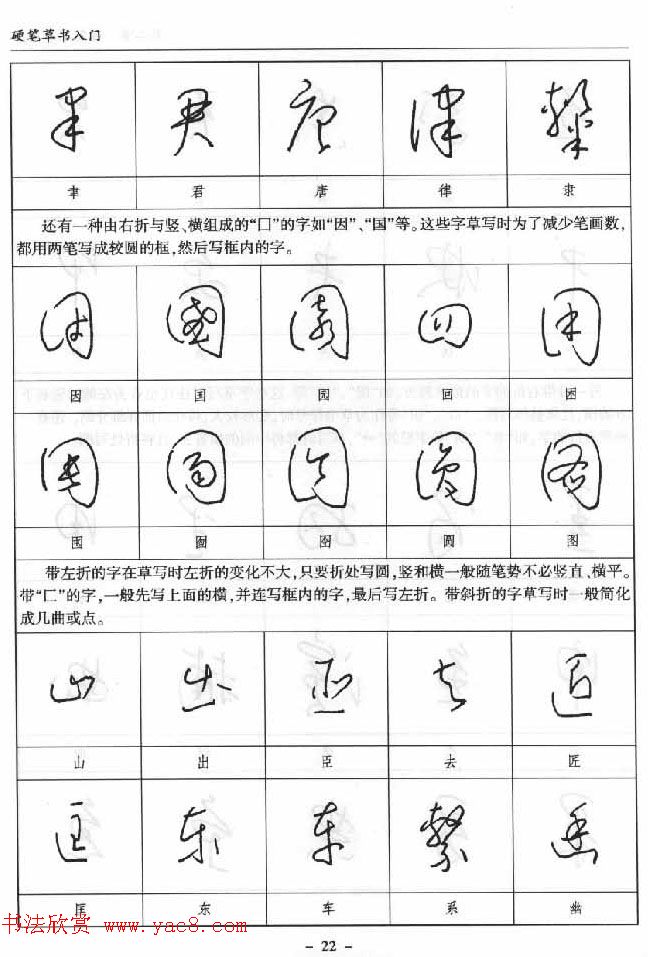 硬笔草书入门
聿 君 唐 律 隶
还有一种由右折与竖、横组成的“囗”的字如“因”、“国”等。这些字草写时为了减少笔画数，
都用两笔写成较圆的框，然后写框内的字。
因 国 园 四 困
围 囱 图 圆 图
带左折的字在草写时左折的变化不大，只要折处写圆，竖和横一般随笔势不必竖直、横平。
带“匚”的字，一般先写上面的横，并连写框内的字，最后写左折。带斜折的字草写时一般简化
成几曲或点。
山 出 臣 去 匠
匡 东 车 系 幽
书法欣赏 www.yac8.com
- 22 -